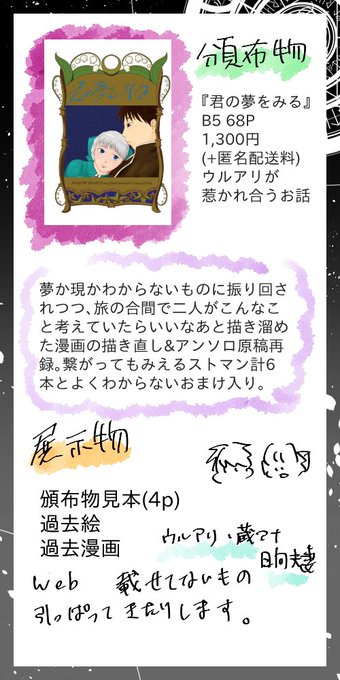 頒布物
君の夢をみる
『君の夢をみる』
B5 68P
1,300円
(+匿名配送料)
ウルアリが
惹かれ合うお話
夢か現かわからないものに振り回さ
れつつ、旅の合間で二人がこんなこ
と考えていたらいいなあと描き溜め
た漫画の描き直し&アンソロ原稿再
録。繋がってもみえるストマン計6
本とよくわからないおまけ入り。
展示物
頒布物見本(4p)
過去絵
過去漫画
ウルアリ、蔵アナ
日向夫妻
web 載せてないもの
引っぱってきたりします。